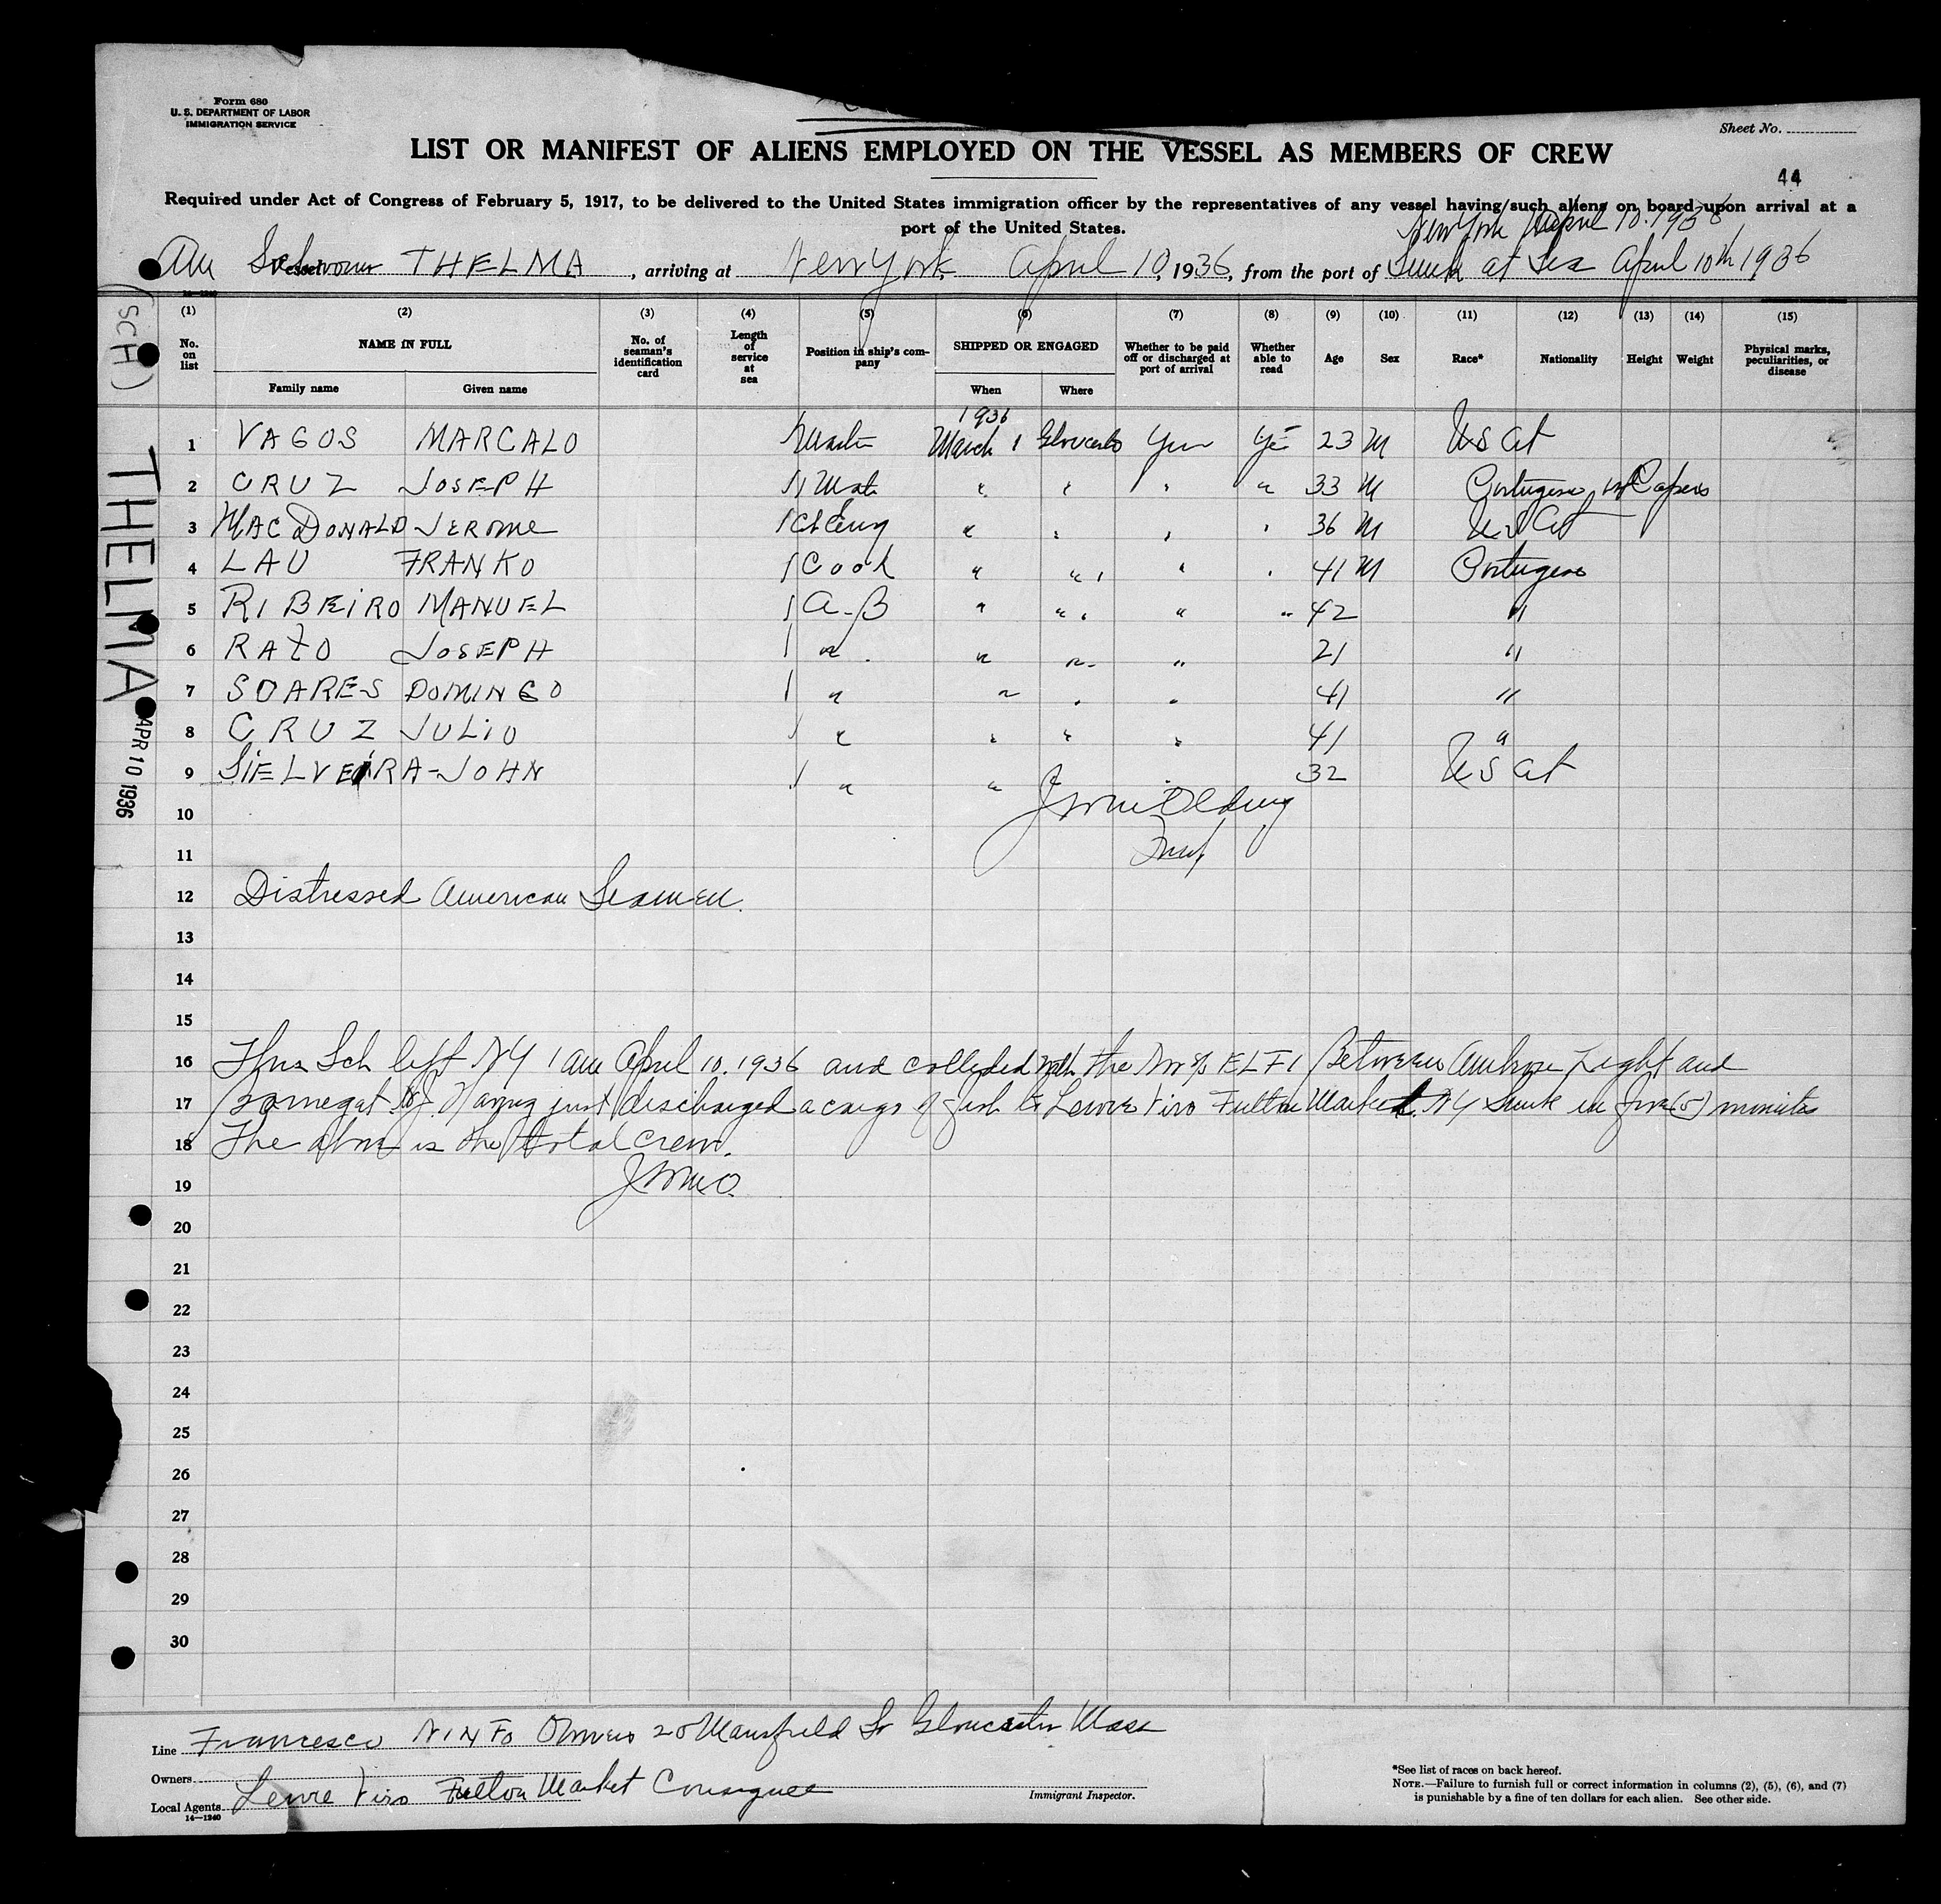 Form 680
U. S. DEPARTMENT OF LABOR
IMMIGRATION SERVICE
Sheet No.
LIST OR MANIFEST OF ALIENS EMPLOYED ON THE VESSEL AS MEMBERS OF CREW
44
Required under Act of Congress of February 5, 1917, to be delivered to the United States immigration officer by the representatives of any vessel having such aliens on board upon arrival at a
port of the United States.
New York April 10. 1936
Am Schooner Vessel THELMA, arriving at New York, April 10, 1936, from the port of Sunk at Sea April 10th 1936
14—1240
(1) (2) (3) (4) (5) (6) (7) (8) (9) (10) (11) (12) (13) (14) (15)
No. on list NAME IN FULL Family name Given name No. of seaman's identification card Length of service at sea Position in ship's company SHIPPED OR ENGAGED When Where Whether to be paid off or discharged at port of arrival Whether able to read Age Sex Race* Nationality Height Weight Physical marks, peculiarities, or disease
1936
1 VAGOS MARCALO Master March 1 Gloucester Yes 23 M US Cit
2 CRUZ JOSEPH 1 Mate " " " " 33 M Portugese Papers
3 MACDONALD JEROME 1 Ch Eng " " " " 36 M US Cit
4 LAU FRANKO 1 Cook " " " " 41 M Portugese
5 RIBEIRO MANUEL 1 A-B " " " " 42 "
6 RATO JOSEPH 1 " " " " 21 "
7 SOARES DOMINGO 1 " " " " 41 "
8 CRUZ JULIO 1 " " " " 41 "
9 SIELVEIRA-JOHN 1 " " " 32 US Cit
10
11
12 Distressed American Seamen.
13
14
15
16 This Sch left NY 1 am April 10. 1936 and collided with the ELFI Between Ambrose Light and
17 Barnegat NJ. Having just discharged a cargo of fish to Fulton Market. NY Sunk in five (5) minutes
18 The above is the total crew.
19 JWmO.
20
21
22
23
24
25
26
27
28
29
30
(SCH) THELMA APR 10 1936
Line Francesco NINFO Owners 20 Mansfield St Gloucester Mass
Owners
Local Agents Fulton Market Consignee
14—1240
Immigrant Inspector.
*See list of races on back hereof.
NOTE.—Failure to furnish full or correct information in columns (2), (5), (6), and (7)
is punishable by a fine of ten dollars for each alien. See other side.